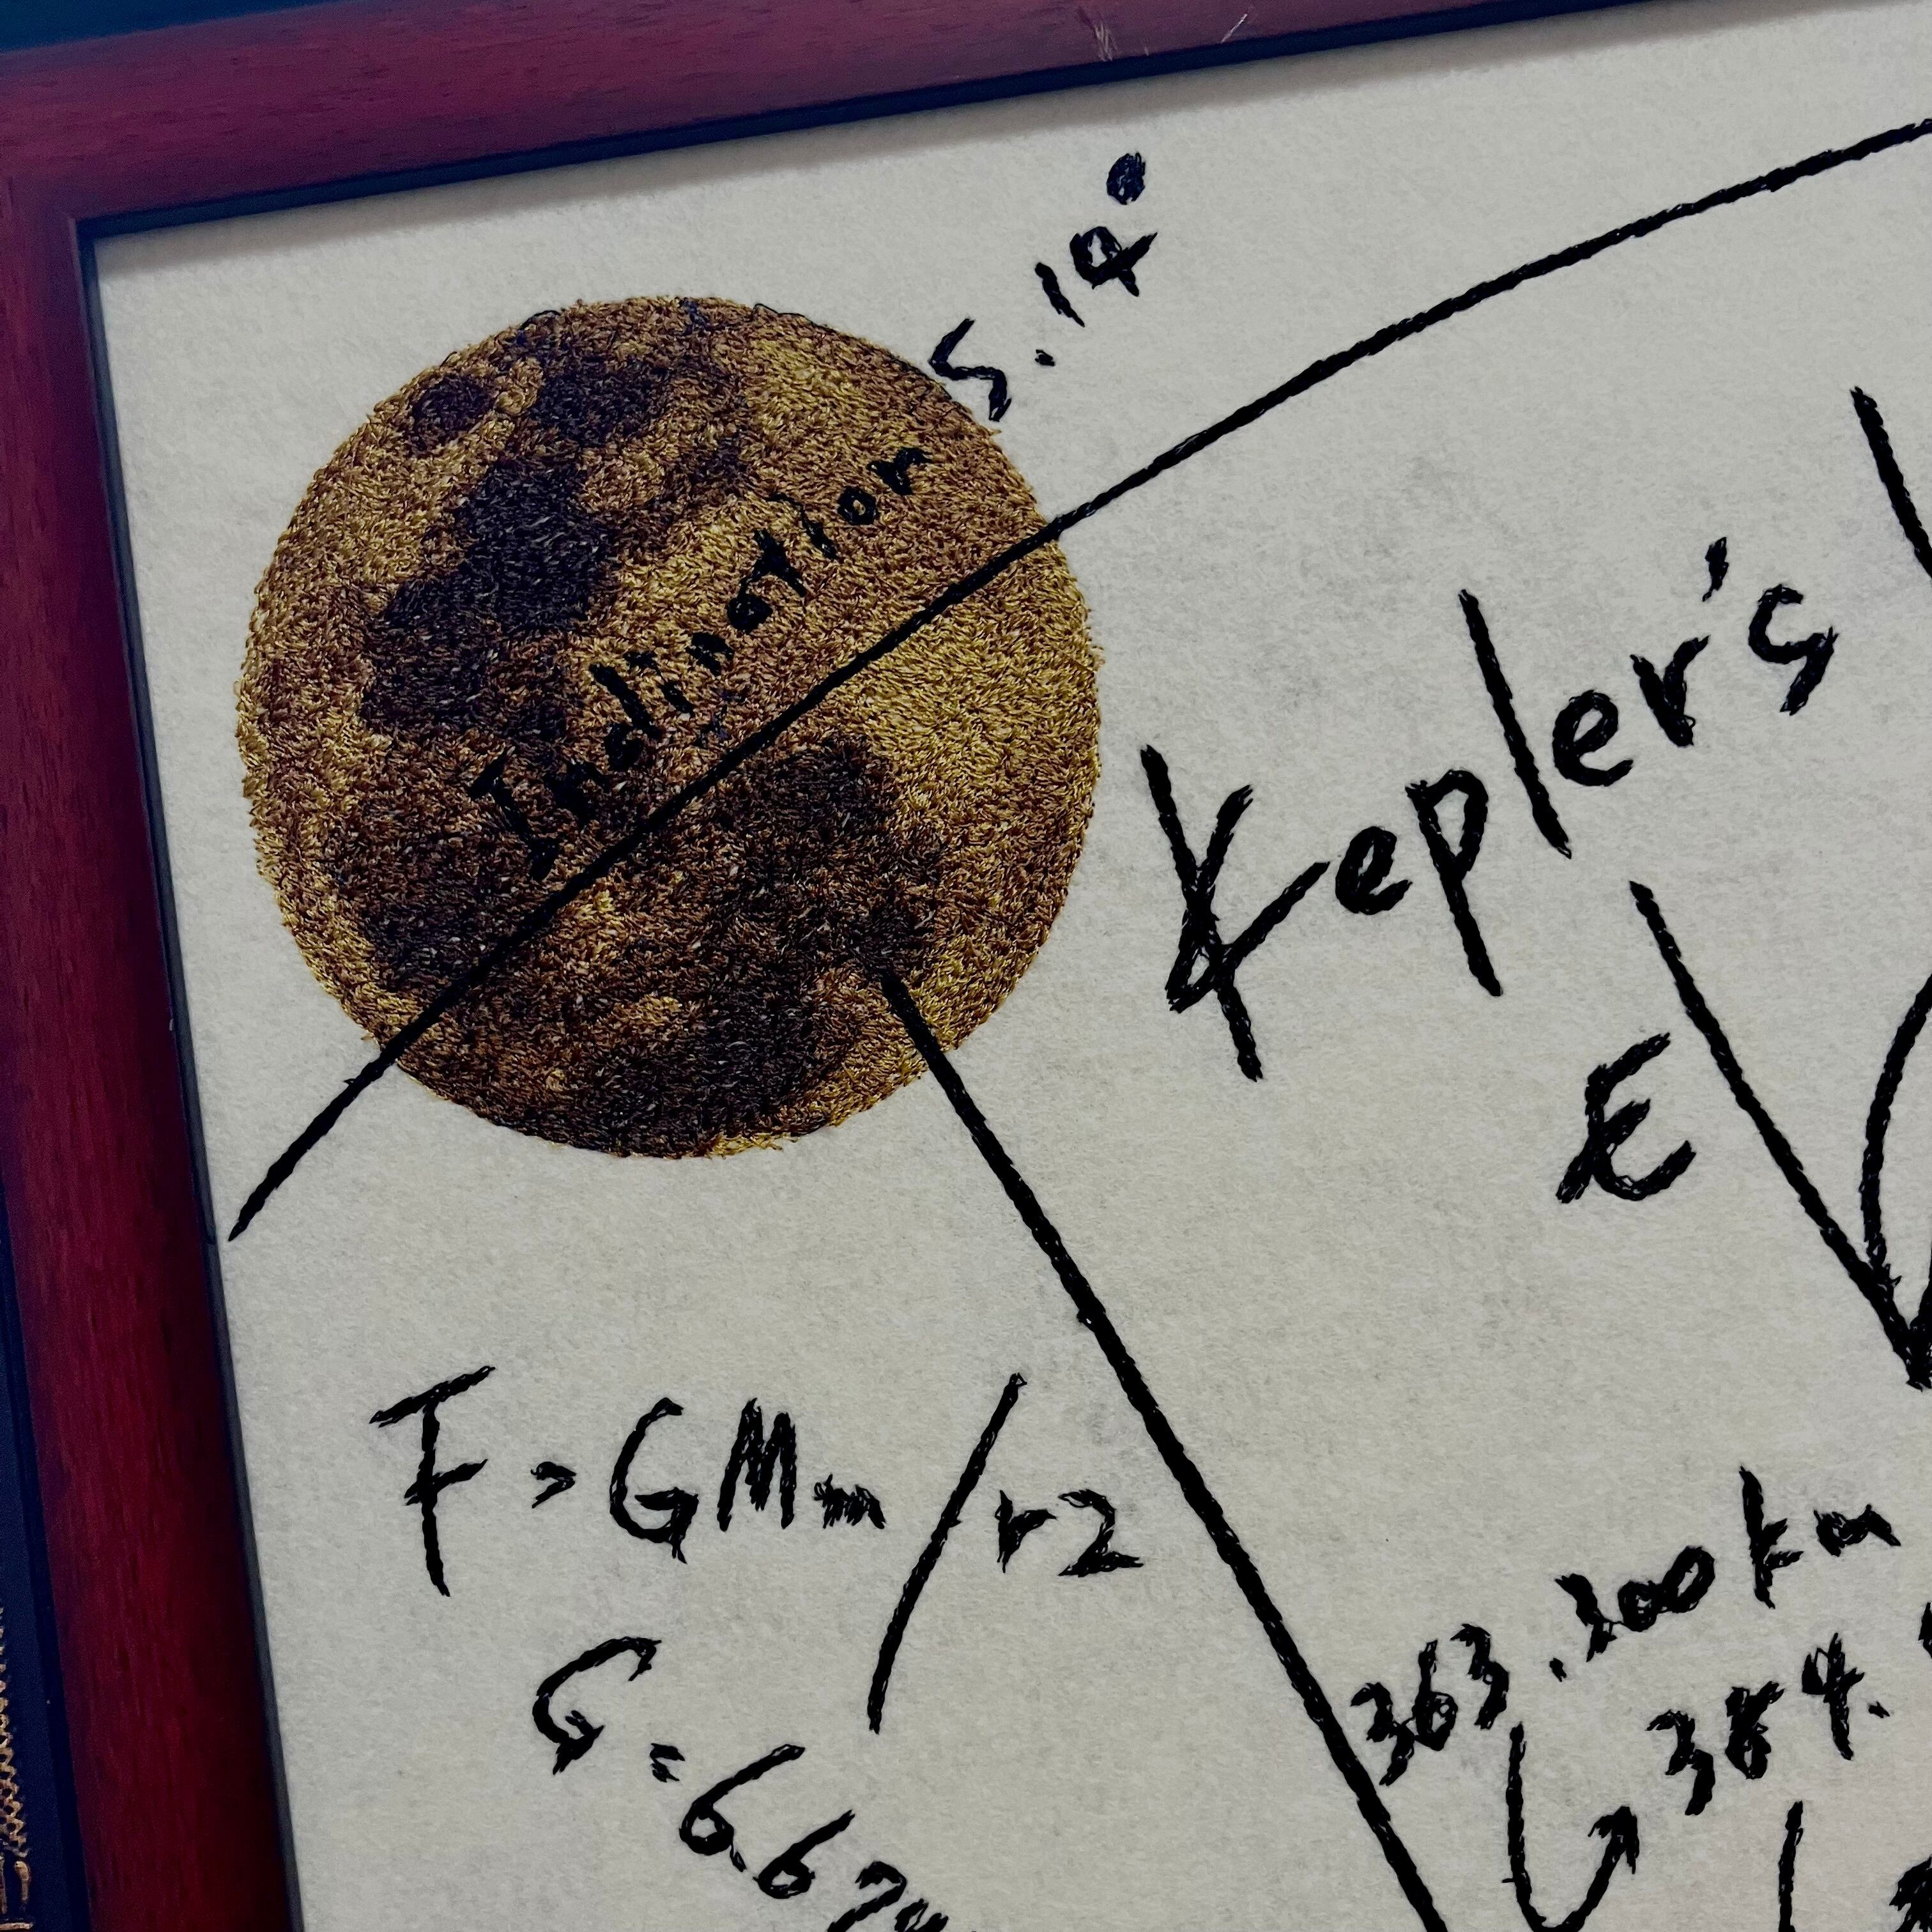 5.14°
Inclination
Kepler's
E
F = GMm/r2
G = 6.674
363.300 km
384.